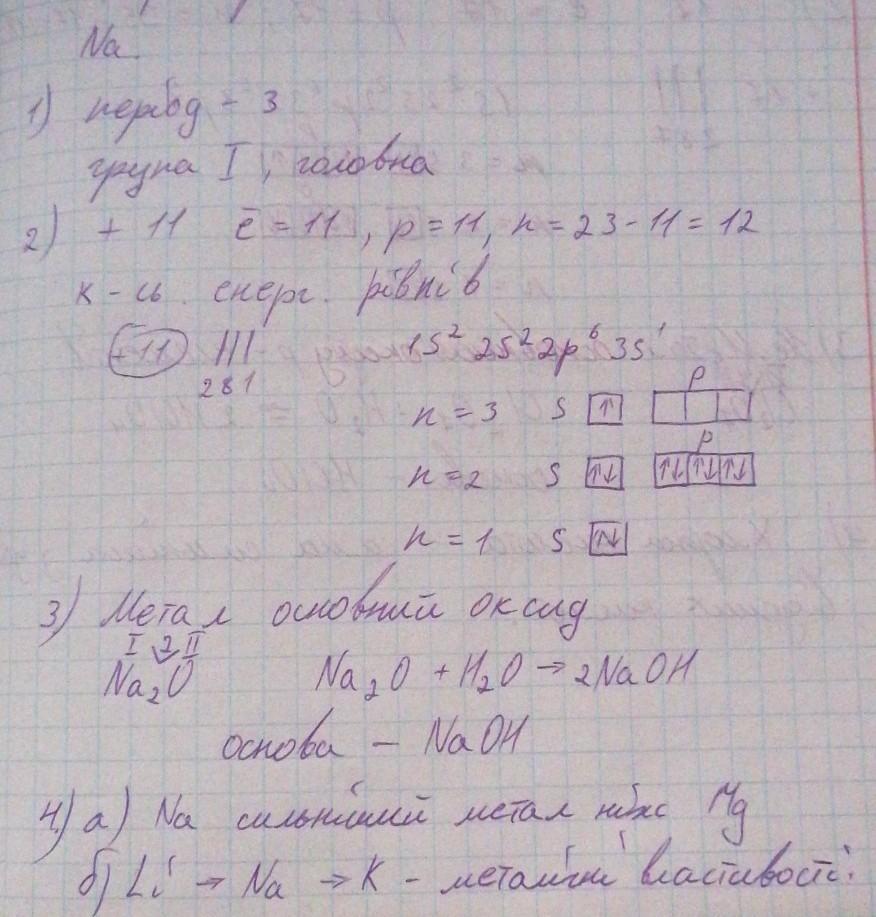 Na.
1) період - 3
група I, головна
2) + 11 ē = 11, p = 11, n = 23 - 11 = 12
к-сь. енерг. рівнів
+11 ||| 1s² 2s² 2p⁶ 3s¹
2 8 1
p
n = 3 s ↑
p
n = 2 s ↑↓ ↑↓ ↑↓ ↑↓
n = 1 s ↑↓
3) Метал основний оксид
I 2 II
Na₂O Na₂O + H₂O → 2NaOH
основа - NaOH
4) а) Na сильніший метал ніж Mg
б) Li → Na → K - металічні властивості.